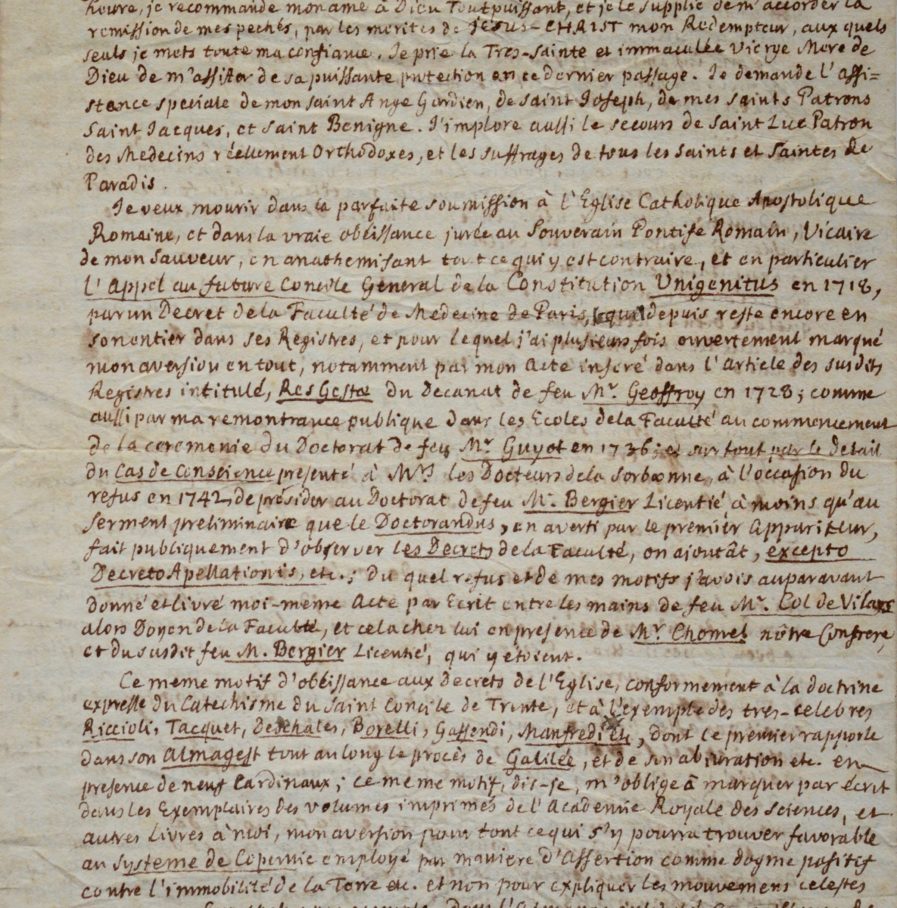 heure, je recommande mon ame à Dieu Tout puissant, et je le supplie de m'accorder la
remission de mes pechés, par les merites de JESUS-CHRIST mon Redempteur, aux quels
seuls je mets toute ma confiance. Je prie la Tres-Sainte et immaculée Vierge Mere de
Dieu de m'assister de sa puissante protection en ce dernier passage. Je demande l'assi=
stance speciale de mon saint Ange Gardien, de saint Joseph, de mes saints Patrons
saint Jacques, et saint Benigne. J'implore aussi le secours de saint Luc Patron
des Medecins réellement Orthodoxes, et les suffrages de tous les saints et saintes de
Paradis.
Je veux mourir dans la parfaite soumission à l'Eglise Catholique Apostolique
Romaine, et dans la vraie obéissance jurée au Souverain Pontife Romain, Vicaire
de mon Sauveur, en anathemisant tout ce qui y est contraire, et en particulier
l'Appel au future Concile General de la Constitution Unigenitus en 1718,
par un Decret de la Faculté de Medecine de Paris, lequel depuis reste encore en
son entier dans ses Registres, et pour lequel j'ai plusieurs fois ouvertement marqué
mon aversion en tout, notamment par mon Acte inseré dans l'Article des susdits
Registres intitulé, Res Gestae du Decanat de feu Mr. Geoffroy en 1728; comme
aussi par ma remontrance publique dans les Ecoles de la Faculté au commencement
de la ceremonie du Doctorat de feu Mr. Guyot en 1736; et sur tout par le detail
du Cas de Conscience presenté à Mrs les Docteurs de la Sorbonne, à l'occasion du
refus en 1742, de présider au Doctorat de feu M. Bergier Licentié, à moins qu'au
serment preliminaire que le Doctorandus, en averti par le premier Appariteur,
fait publiquement d'observer les Decrets de la Faculté, on ajoutât, excepto
Decreto Apellationis, etc.; Du quel refus et de mes motifs j'avois auparavant
donné et livré moi-même Acte par Ecrit entre les mains de feu Mr. Col de Vilars
alors Doyen de la Faculté, et cela chez lui en presence de Mr. Chomel nôtre Confrere,
et du susdit feu M. Bergier Licentié, qui y étoient.
Ce meme motif d'obéissance aux Decrets de l'Eglise, conformement à la doctrine
expresse du Catechisme du Saint Concile de Trente, et à l'exemple des tres-celebres
Riccioli, Tacquet, Deschales, Borelli, Gassendi, Manfredi etc, dont le premier rapporte
dans son Almagest tout au long le procès de Galilée, et de son abjuration etc. en
presence de neuf Cardinaux; ce meme motif, dis-je, m'oblige à marquer par écrit
dans les Exemplaires des volumes imprimés de l'Academie Royale des Sciences, et
autres Livres à moi, mon aversion pour tont ce qui s'y pourra trouver favorable
au systeme de Copernic employé par maniere d'Assertion comme dogme positif
contre l'immobilité de la Terre etc. et non pour expliquer les mouvemens celestes